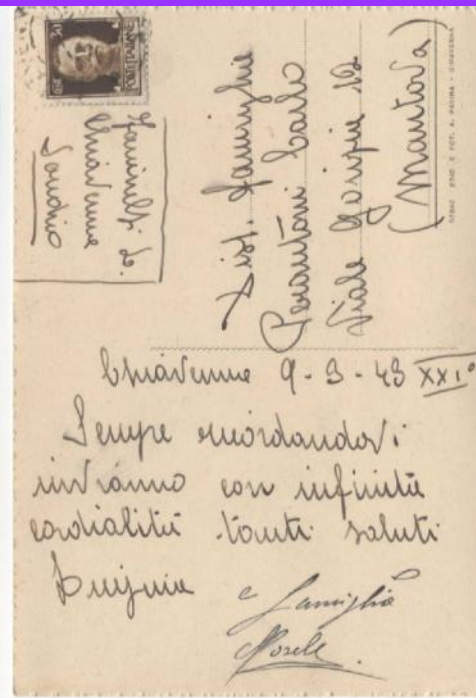 POSTE ITALIANE
30
Zaninetti L.
Chiavenna
Sondrio
Dist. Famiglia
Perantoni Carlo
Viale Gorizia 12
(Mantova)
Chiavenna 9-3-43 XXI°
Sempre ricordandovi
inviamo con infinite
cordialità tanti saluti
Luigina
e famiglia